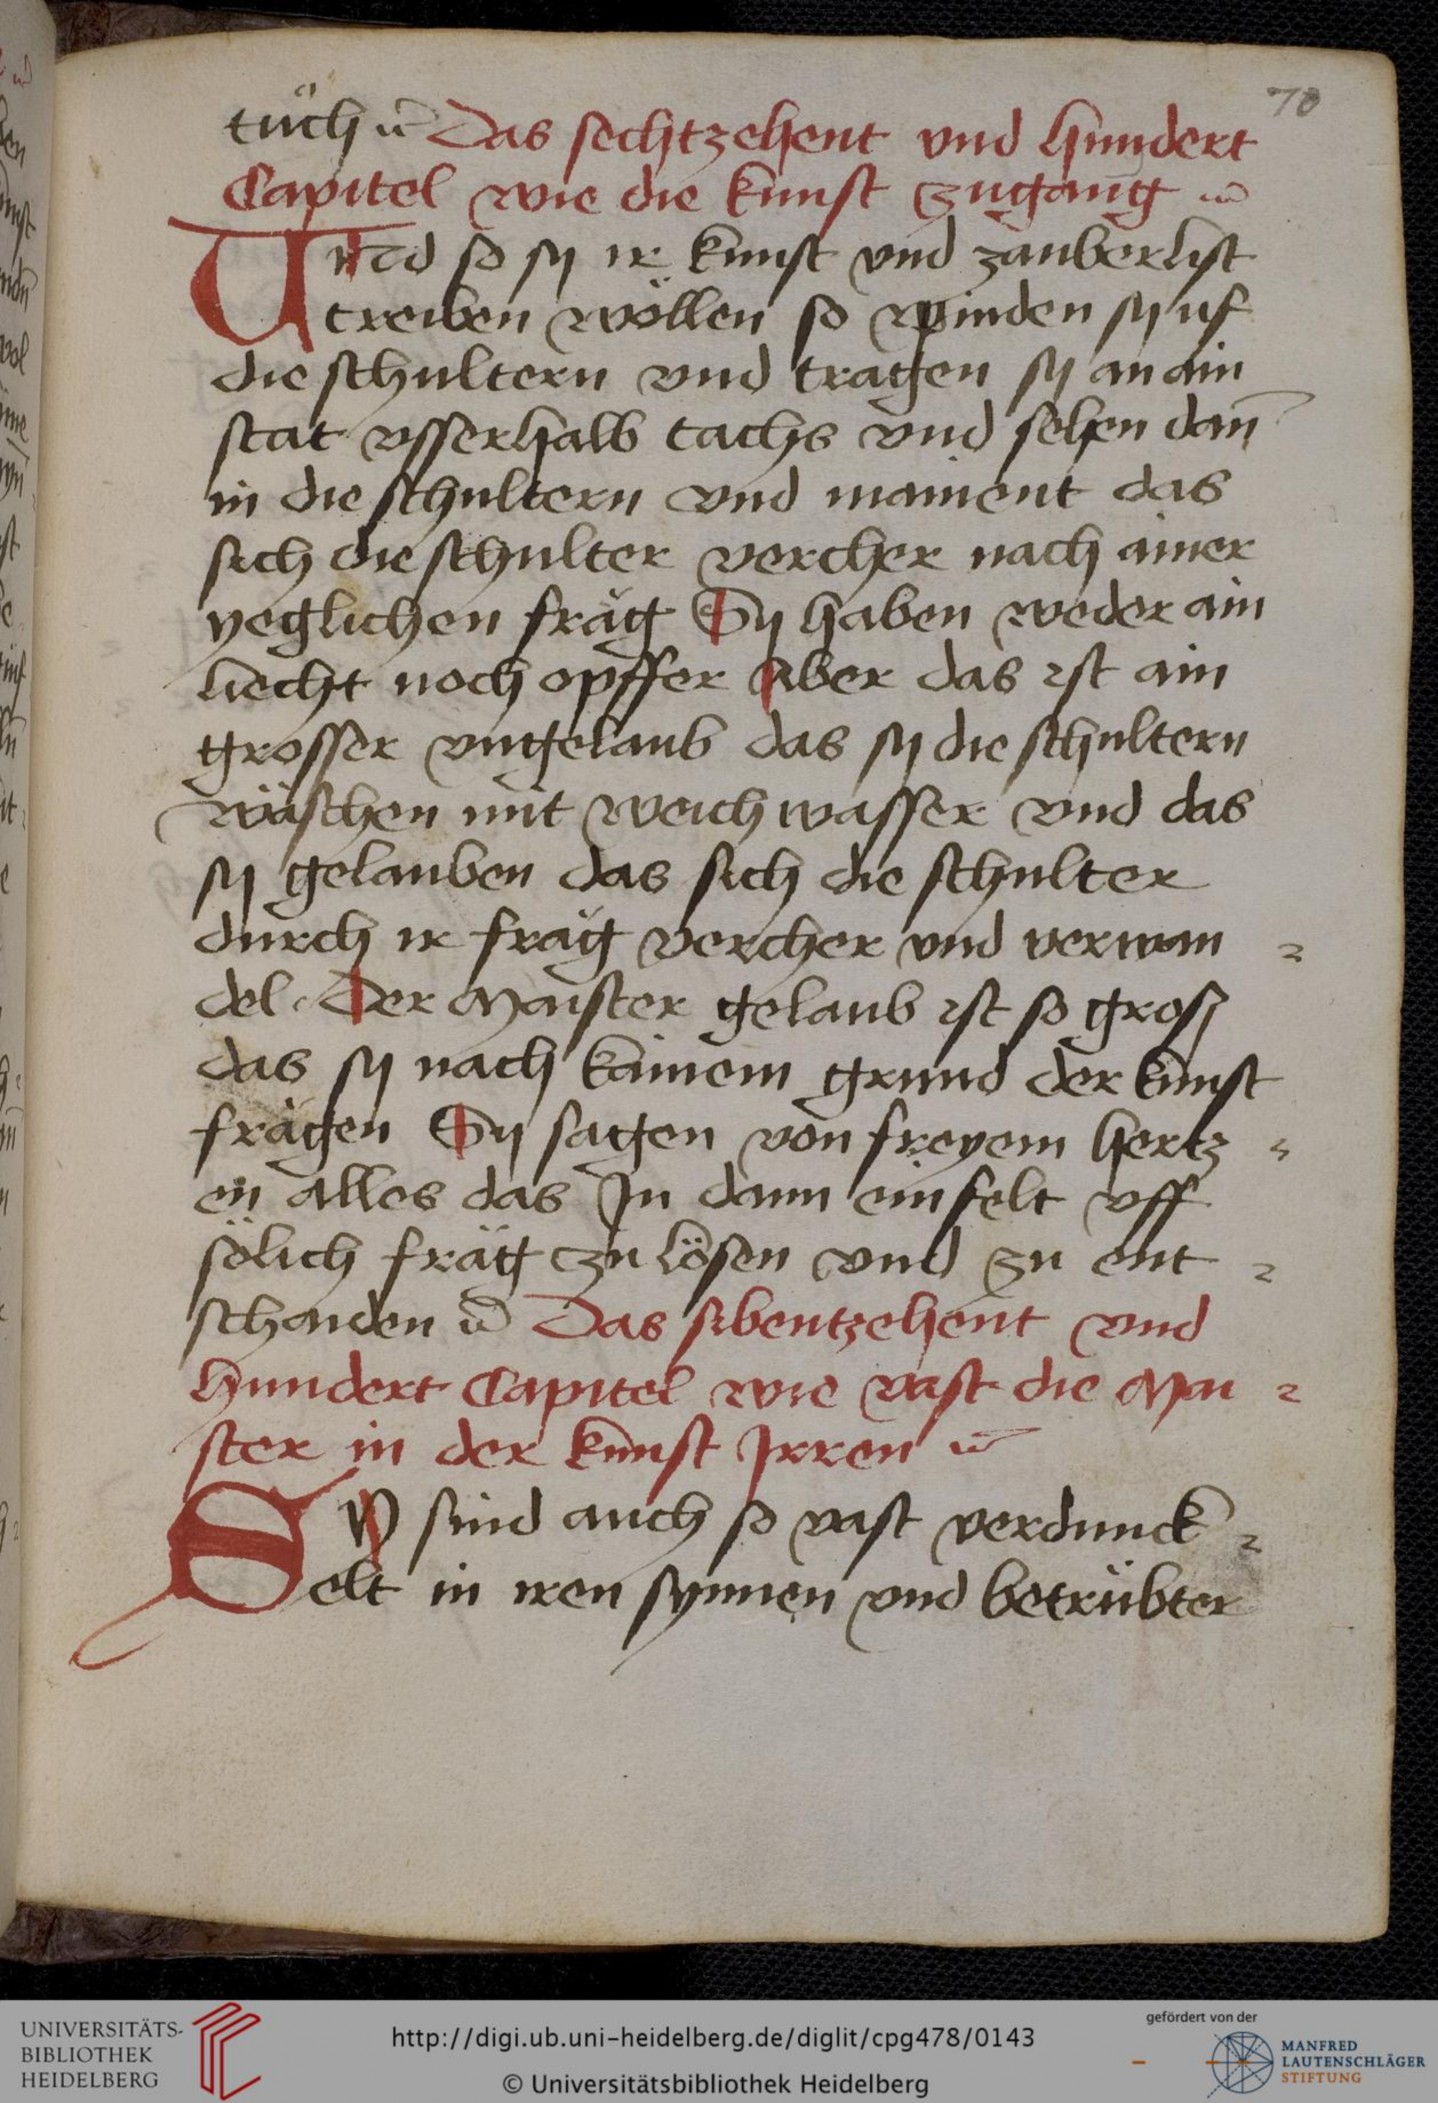 70
tüch
Das sechtzehent vnd hundert
Capitel wie die kunst zugang
Vnd so sy ir kunst vnd zauberlist
treiben wöllen so winden sy uf
die schultern vnd tragen sy an ain
stat vsserhalb tachs vnd sehen dan̄
in die schultern vnd mainent das
sich die schulter vercher nach ainer
yeglichen fräg Sy haben weder ain
liecht noch opffer Aber das ist ain
grosser vngelaub das sy die schultern
wäschen mit weich wasser vnd das
sy gelauben das sich die schulter
durch ir fräg vercher vnd verwan
del. Der Maister gelaub ist so gross
das sy nach kainem grund der kunst
frägen Sy sagen von freyem hertz
en alles das In dann einfelt vff
sölich fräg zu lösen vnd zu ent
schaiden Das sibentzehent vnd
hundert Capitel wie vast die Mai
ster in der kunst Irren
Sy sind auch so vast verdunck
elt in iren synnen vnd betrübter
UNIVERSITÄTS-
BIBLIOTHEK
HEIDELBERG
http://digi.ub.uni-heidelberg.de/diglit/cpg478/0143
© Universitätsbibliothek Heidelberg
gefördert von der
MANFRED
LAUTENSCHLÄGER
STIFTUNG